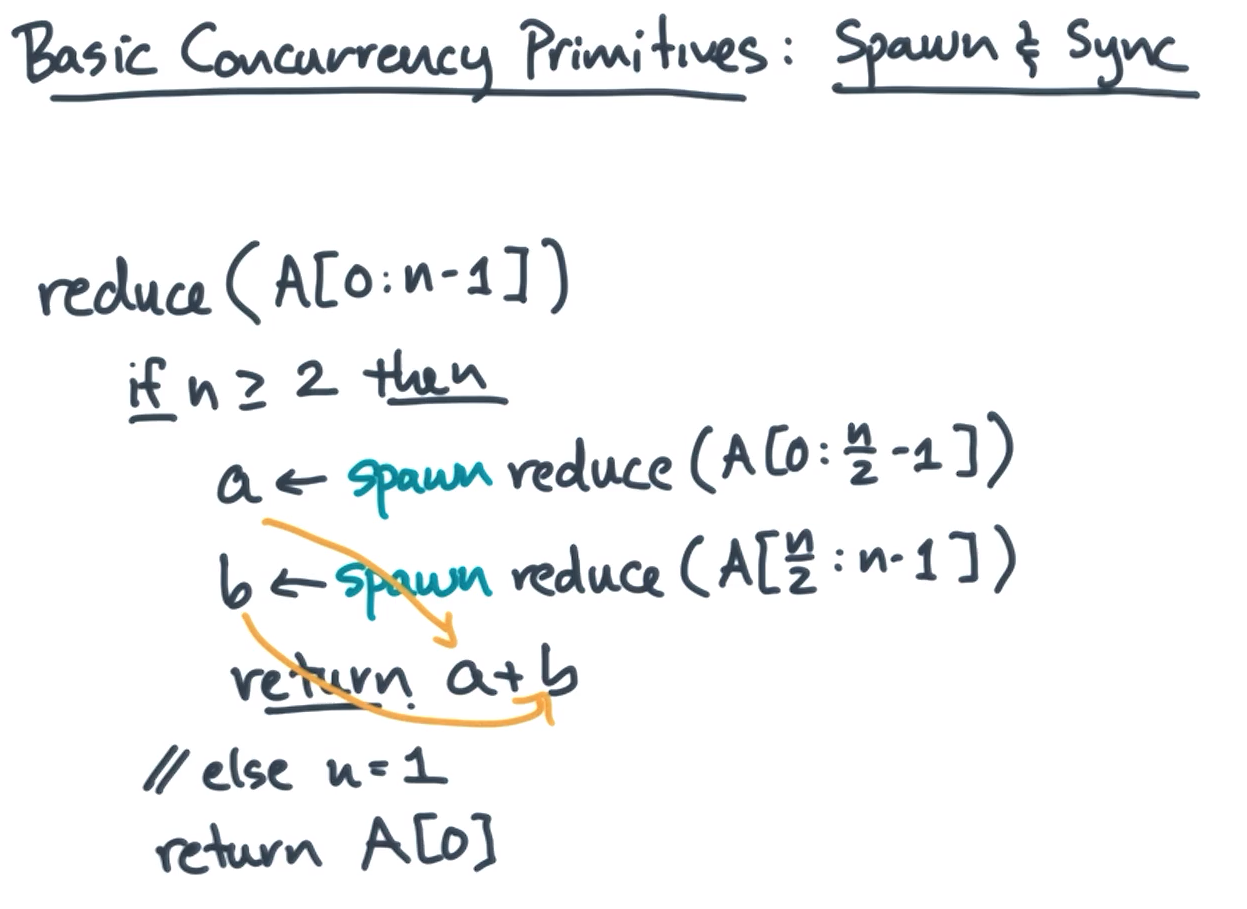 Basic Concurrency Primitives: Spawn & Sync
reduce(A[0:n-1])
if n ≥ 2 then
a ← spawn reduce(A[0:n/2-1])
b ← spawn reduce(A[n/2:n-1])
return a+b
// else n=1
return A[0]